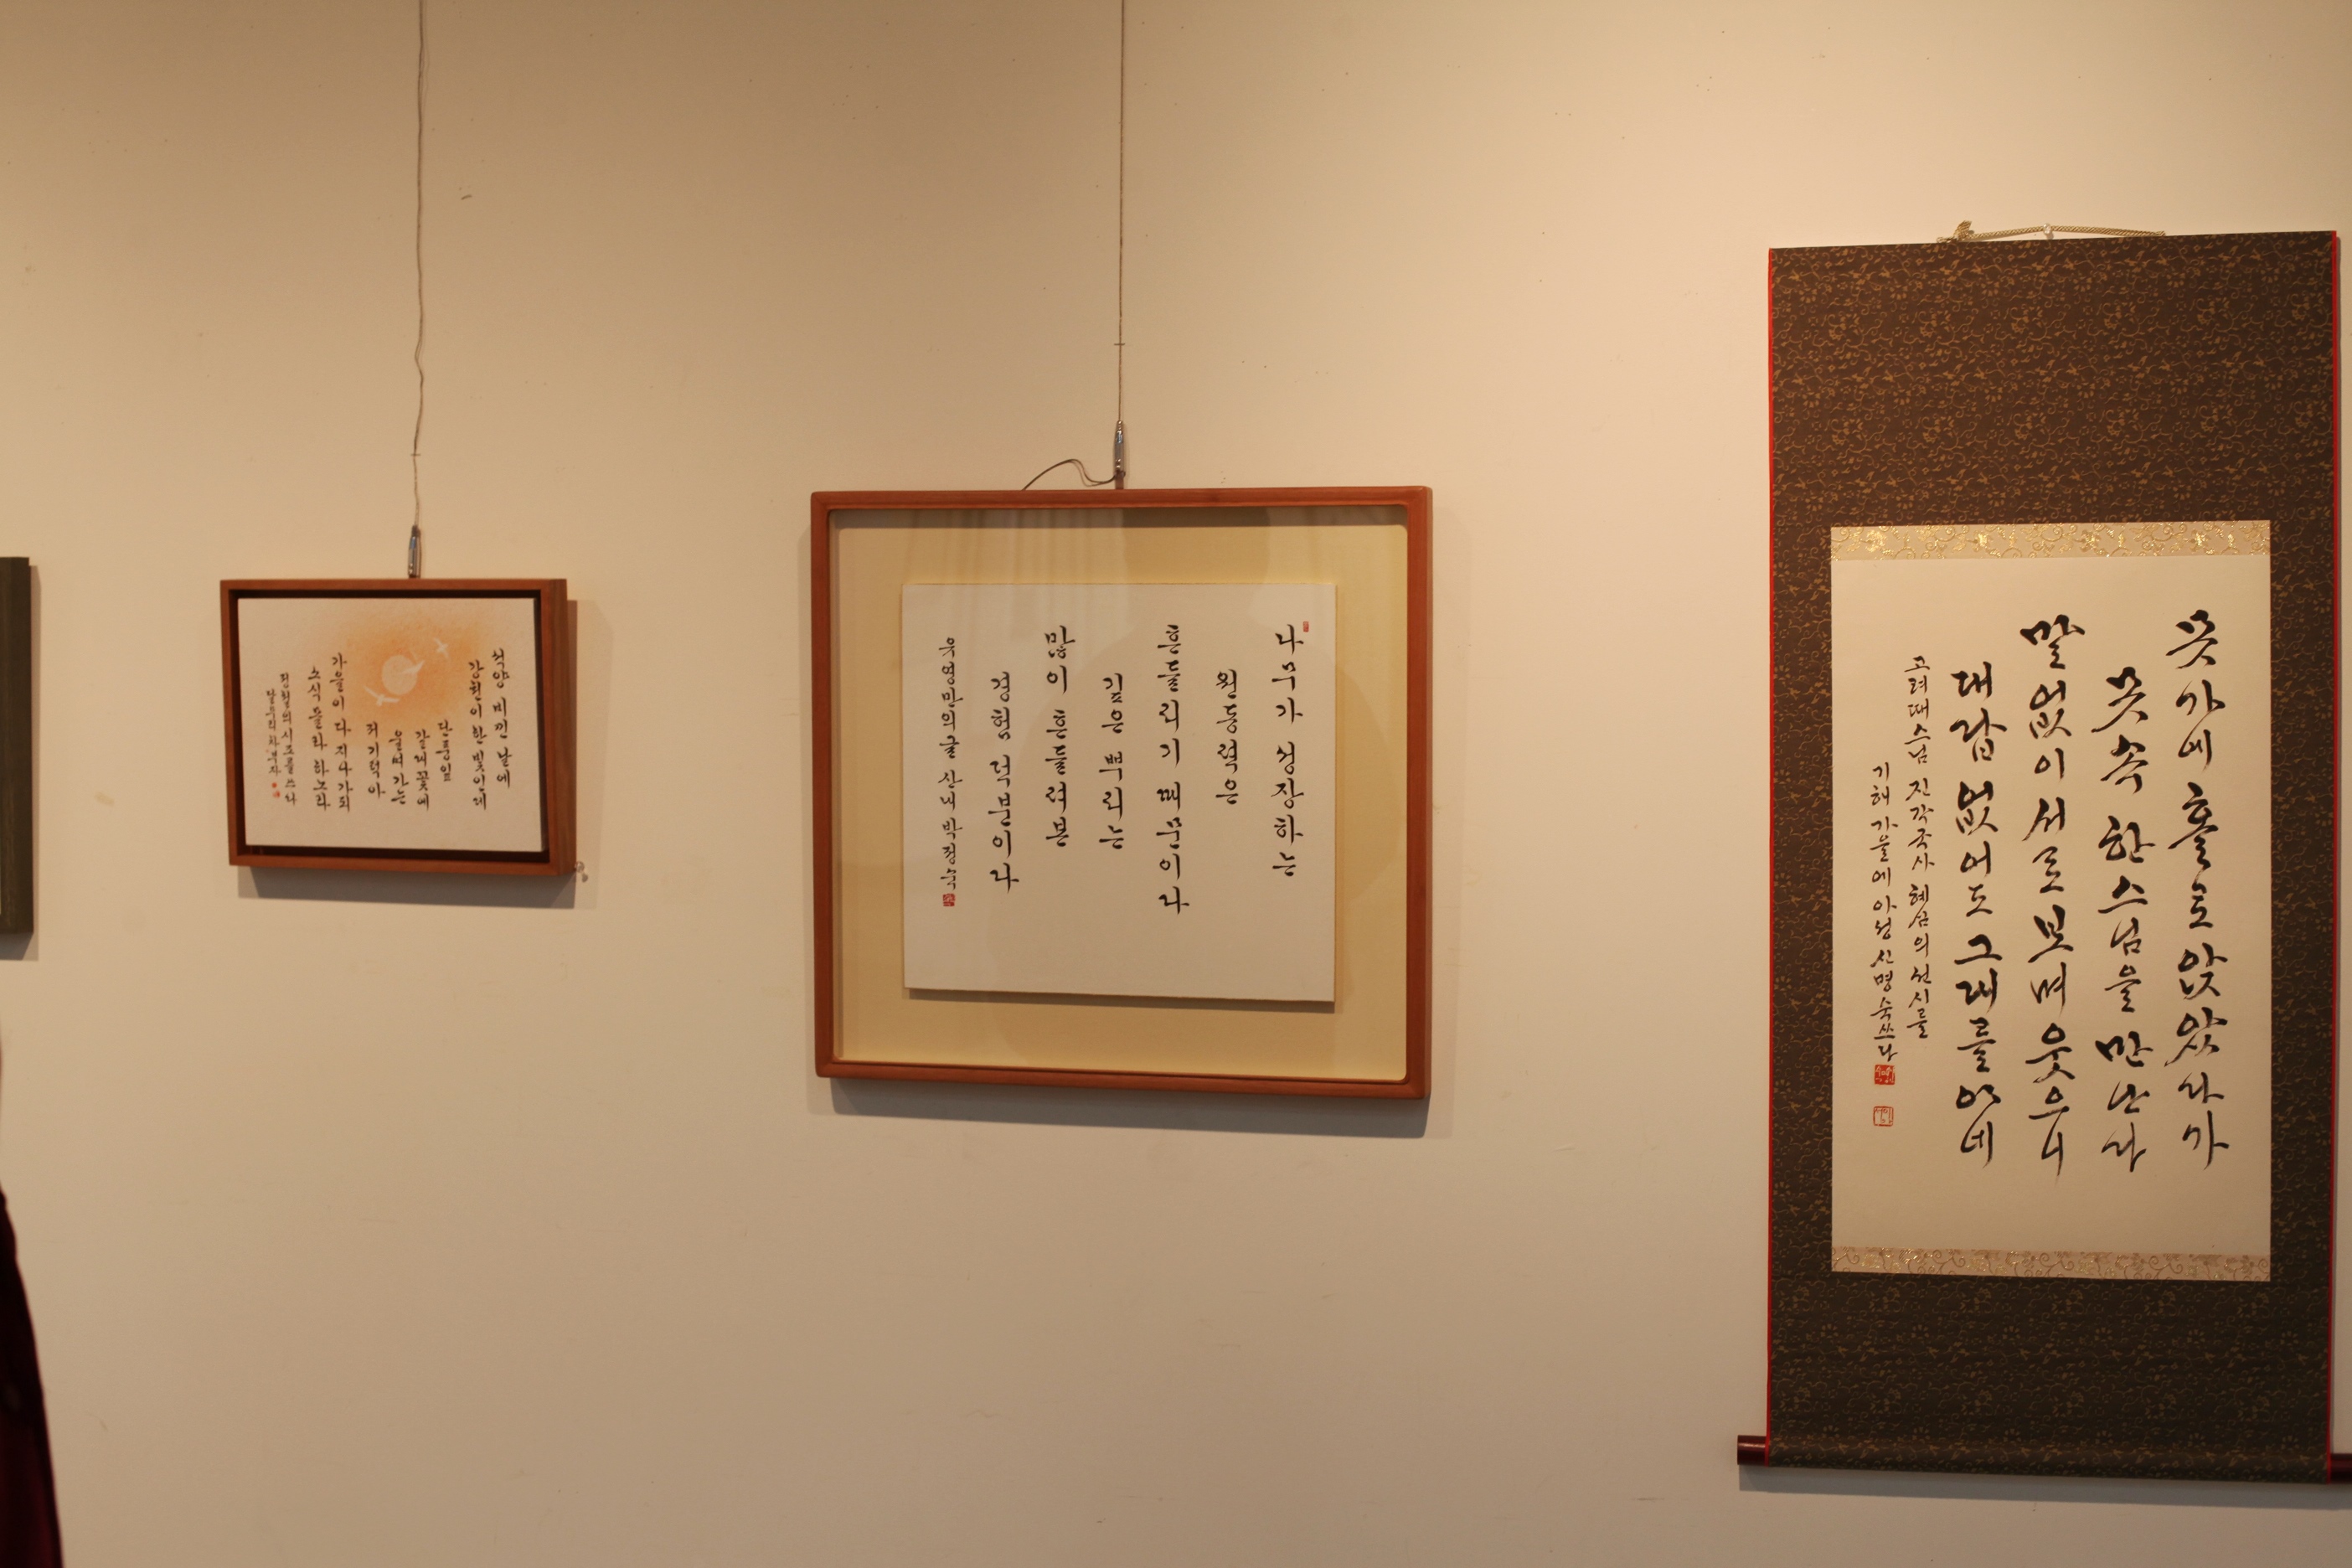 석양 비낀 날에
강천이 한 빛인제
단풍잎
갈꽃에
울며 가는
저 기럭아
가을이 다 지나가되
소식 몰라 하노라
나무가 성장하는
원동력은
흔들리기 때문이다
기쁨 뿌리는
많이 흔들려본
경험 덕분이다
못가에 홀로 앉았다가
못 속 한 스님을 만났다
말없이 서로 보며 웃으니
대답 없어도 그대를 아네
고려때 스님 진각국사 혜심의 선시를
기해 가을에 아성 신명숙 쓰다